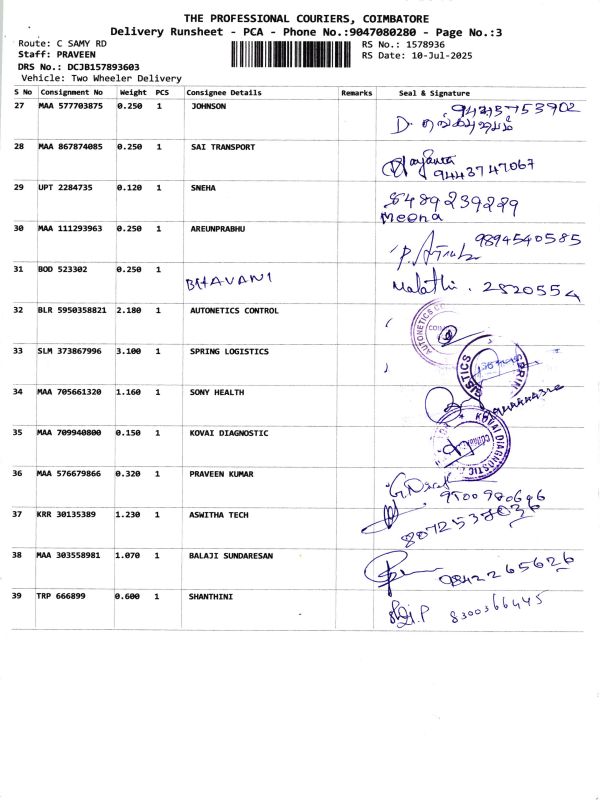 THE PROFESSIONAL COURIERS, COIMBATORE
Delivery Runsheet - PCA - Phone No.:9047080280 - Page No.:3
Route: C SAMY RD
Staff: PRAVEEN
DRS No.: DCJB157893603
Vehicle: Two Wheeler Delivery
RS No.: 1578936
RS Date: 10-Jul-2025
S No Consignment No Weight PCS Consignee Details Remarks Seal & Signature
27 MAA 577703875 0.250 1 JOHNSON
28 MAA 867874085 0.250 1 SAI TRANSPORT
9443747067
29 UPT 2284735 0.120 1 SNEHA
8489239229
Meena
30 MAA 111293963 0.250 1 AREUNPRABHU
9894540585
31 BOD 523302 0.250 1 BHAVANI Malathi. 2520554
32 BLR 5950358821 2.180 1 AUTONETICS CONTROL
33 SLM 373867996 3.100 1 SPRING LOGISTICS
34 MAA 705661320 1.160 1 SONY HEALTH
35 MAA 709940800 0.150 1 KOVAI DIAGNOSTIC KOVAI DIAGNOSTIC
36 MAA 576679866 0.320 1 PRAVEEN KUMAR
9500980696
37 KRR 30135389 1.230 1 ASWITHA TECH
8072537036
38 MAA 303558981 1.070 1 BALAJI SUNDARESAN
9842265626
39 TRP 666899 0.600 1 SHANTHINI
8300366445